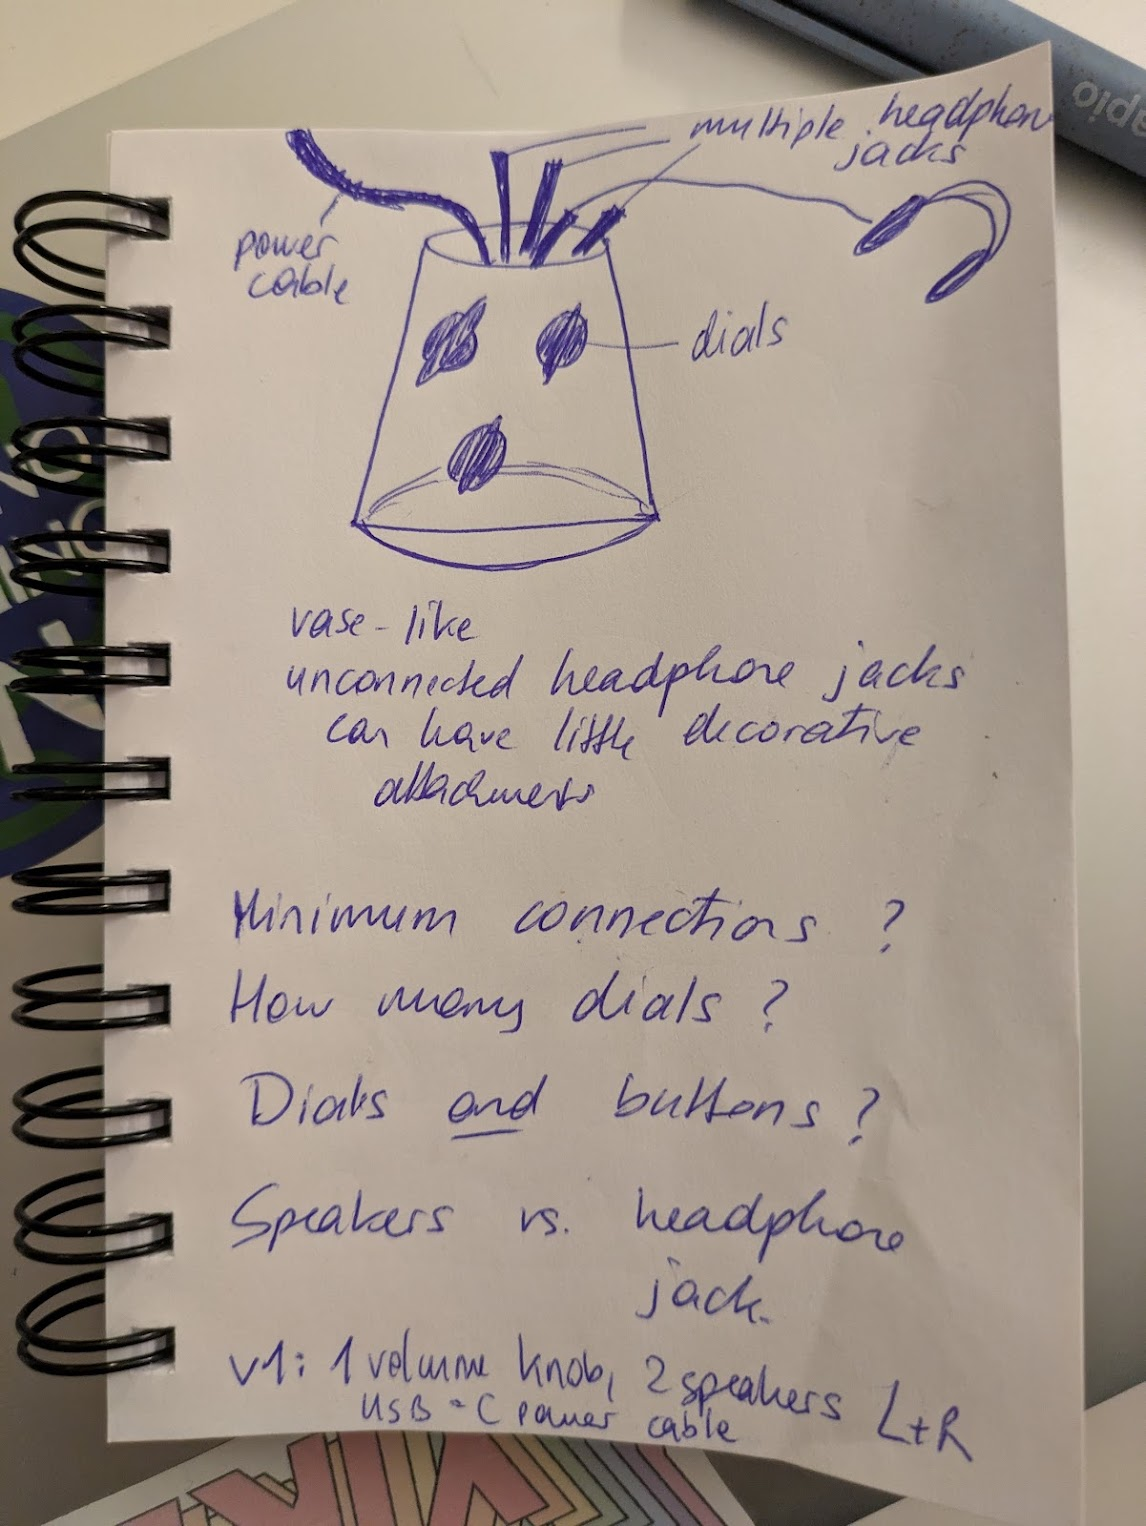 multiple headphone
jacks
power
cable
dials
vase-like
unconnected headphone jacks
can have little decorative
attachments
Minimum connections ?
How many dials ?
Dials and buttons ?
Speakers vs. headphone
jack.
v1: 1 volume knob, 2 speakers L+R
USB-C power cable